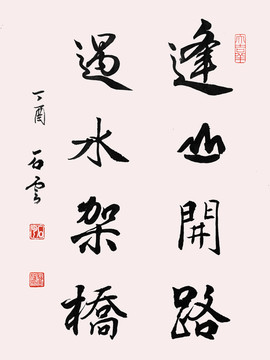 逢山開路
遇水架橋
丁酉
石雲